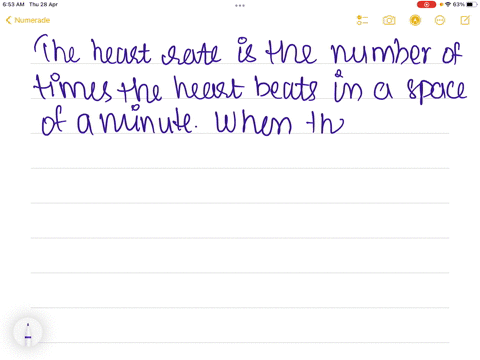 6:53 AM Thu 28 Apr
63%
Numerade
The heart rate is the number of
times the heart beats in a space
of a minute. When th